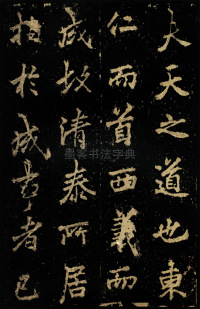 夫天之道也東
仁而首西義而
成故清泰所居
指於成事者已
书法字典